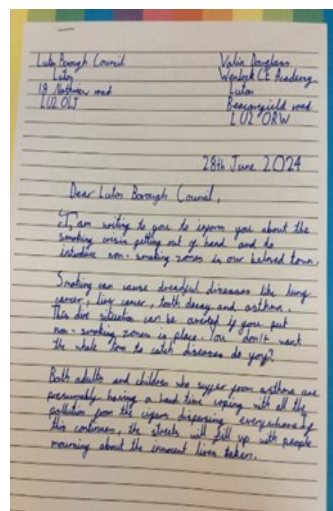 Luton Borough Council
Luton
18 Northview road
LU2 0LJ
Valia Douglass
Wenlock CE Academy
Luton
Beaconsfield road
LU2 0RW
28th June 2024
Dear Luton Borough Council,
I am writing to you to inform you about the
smoking crisis getting out of hand and to
introduce non-smoking zones in our beloved town.
Smoking can cause dreadful diseases like lung
cancer, liver cancer, tooth decay and asthma.
This dire situation can be averted if you put
non-smoking zones in place. You don't want
the whole town to catch diseases do you?
Both adults and children who suffer from asthma are
presumably having a hard time coping with all the
pollution from the cigars dispersing everywhere. If
this continues, the streets will fill up with people
mourning about the innocent lives taken.